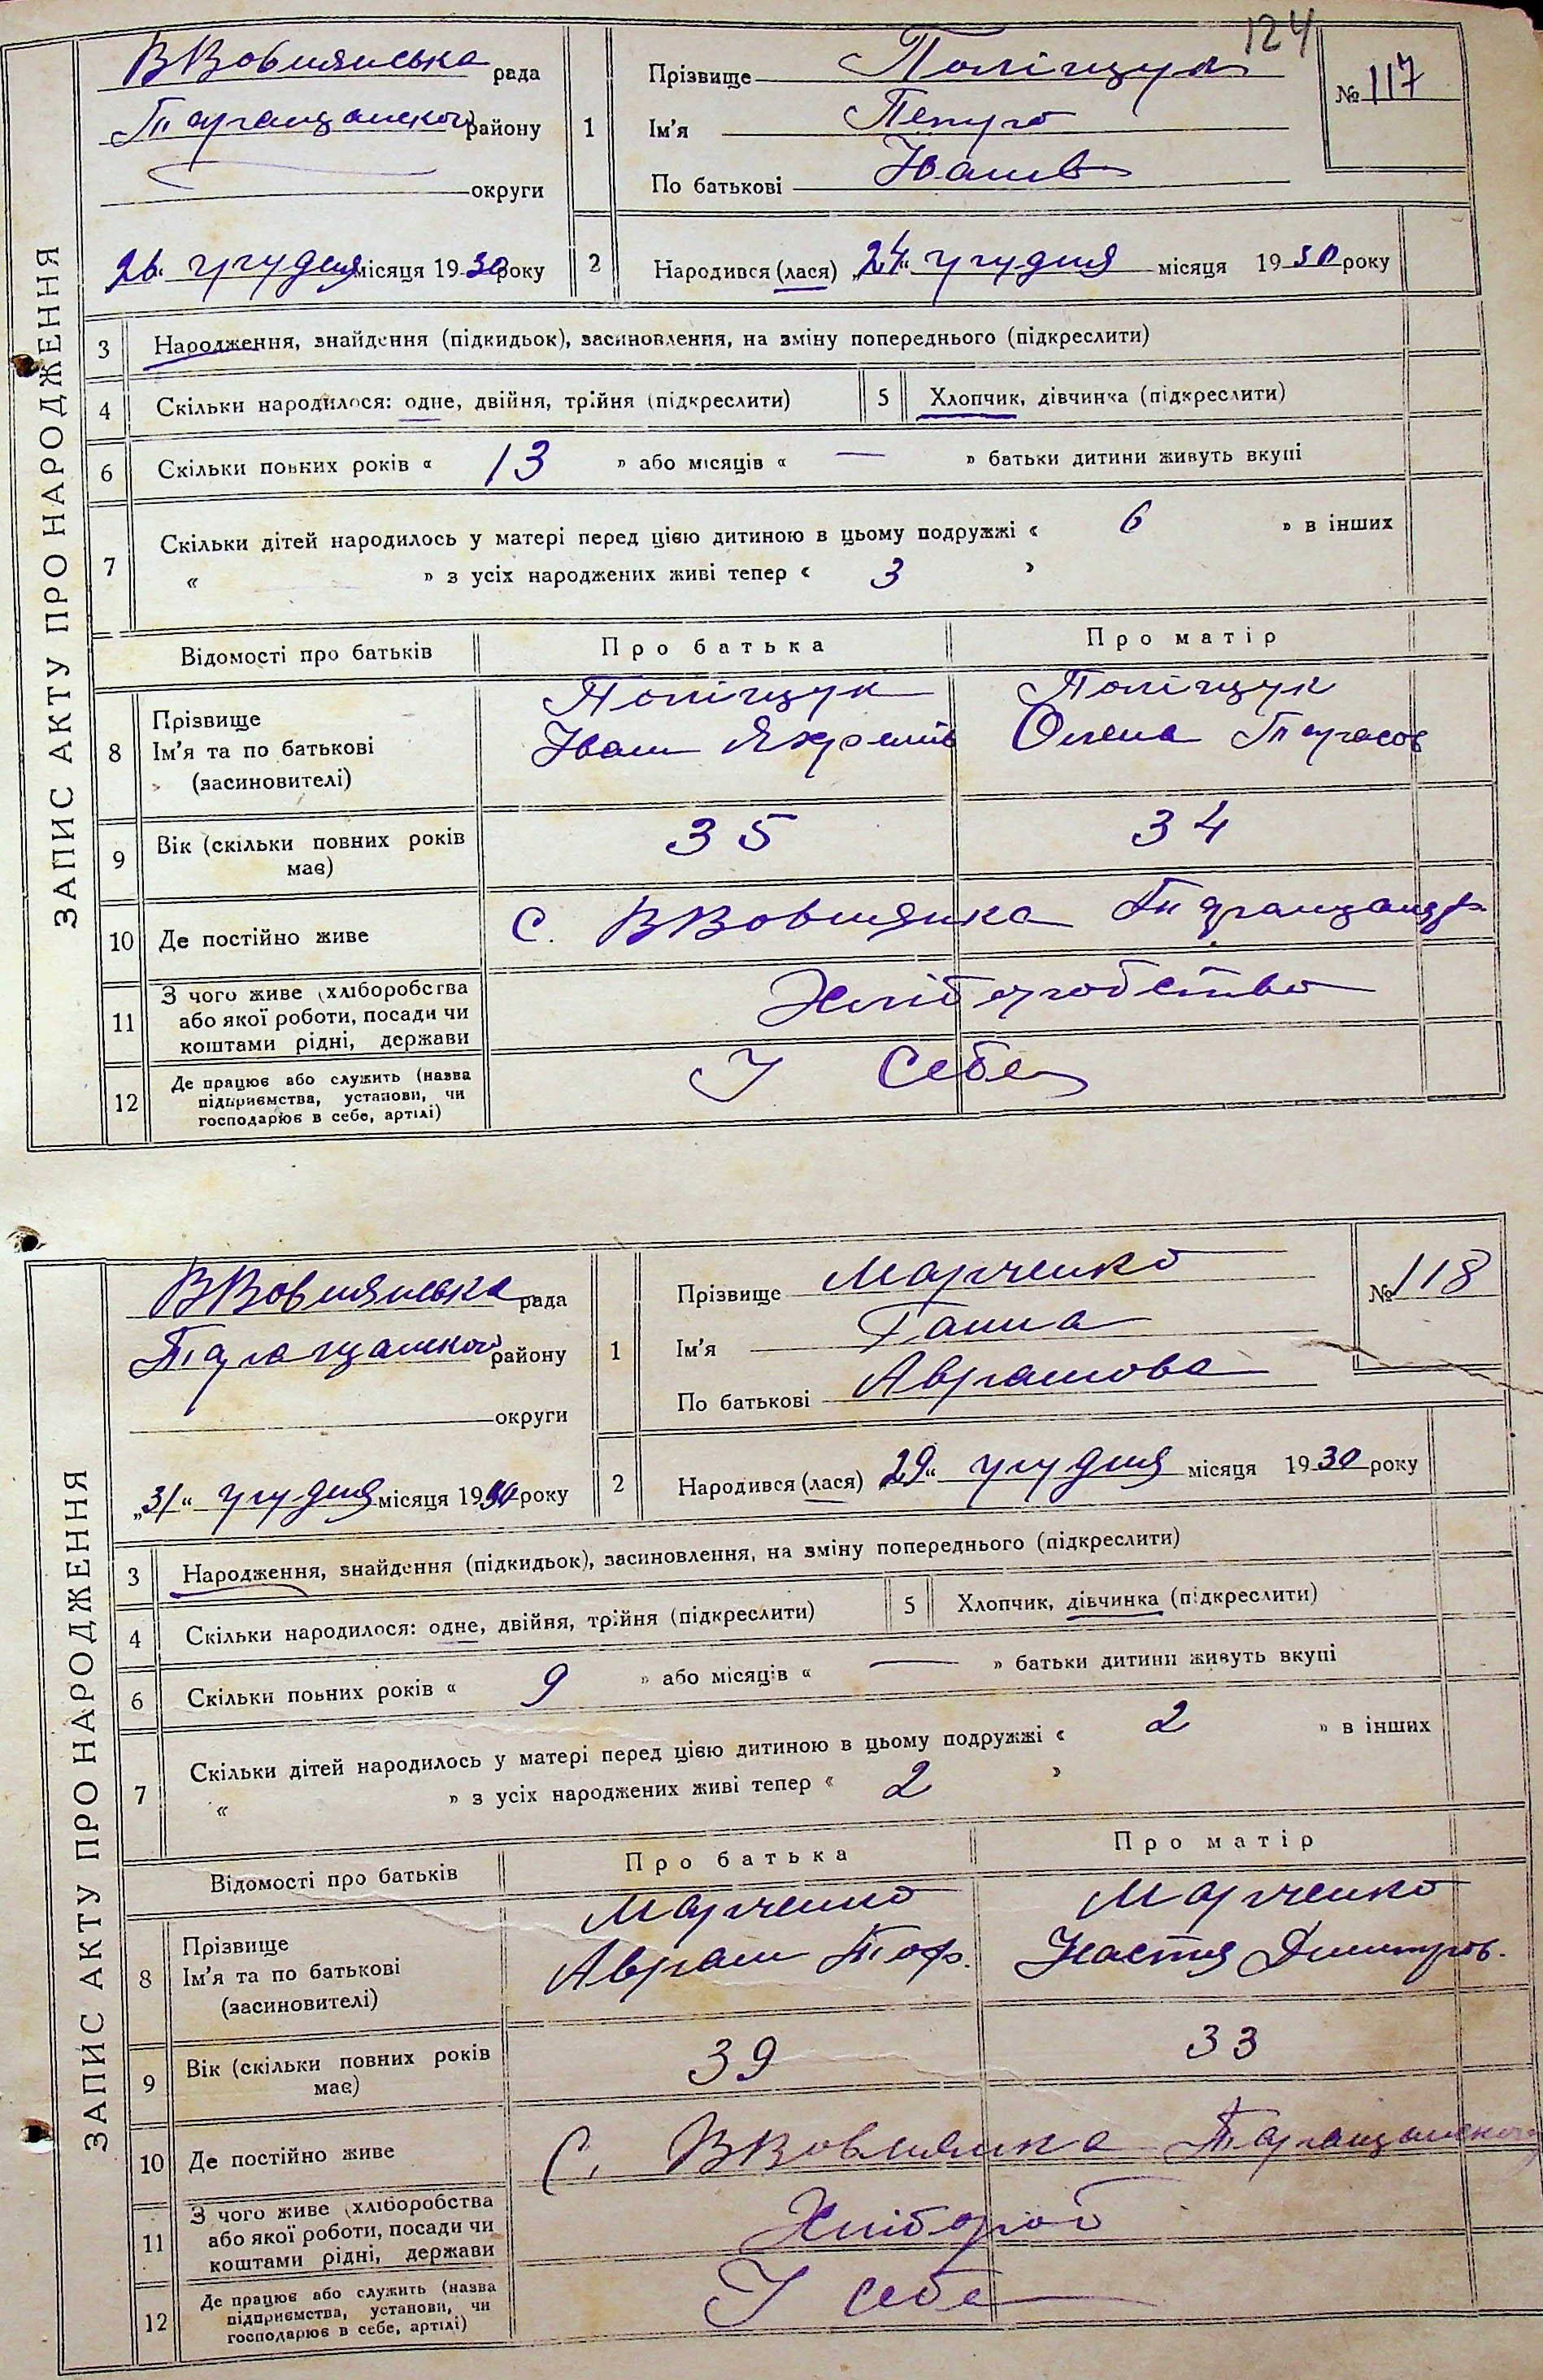 124
ЗАПИС АКТУ ПРО НАРОДЖЕННЯ
ВВовнянська рада
Таращанського району
округи
26 грудня місяця 1930 року
1
Прізвище Поліщук
Ім'я Петро
По батькові Іванів
№ 117
2
Народився (лася) „24“ грудня місяця 1930 року
3 Народження, знайдення (підкидьок), засиновлення, на зміну попереднього (підкреслити)
4 Скільки народилося: одне, двійня, трійня (підкреслити) 5 Хлопчик, дівчинка (підкреслити)
6 Скільки повних років « 13 » або місяців « — » батьки дитини живуть вкупі
7 Скільки дітей народилось у матері перед цією дитиною в цьому подружжі « 6 » в інших
« » з усіх народжених живі тепер « 3 »
Відомості про батьків Про батька Про матір
8 Прізвище Ім'я та по батькові (засиновителі)
Поліщук Поліщук
Іван Олена Тарасов
9 Вік (скільки повних років має) 35 34
10 Де постійно живе с. ВВовнянка
11 З чого живе (хліборобства або якої роботи, посади чи коштами рідні, держави Хліборобство
12 Де працює або служить (назва підприємства, установи, чи господарює в себе, артілі) У себе
ЗАПИС АКТУ ПРО НАРОДЖЕННЯ
ВВовнянська рада
Таращанського району
округи
„31“ грудня місяця 1930 року
1
Прізвище Марченко
Ім'я Ганна
По батькові Аврамова
№ 118
2
Народився (лася) „29“ грудня місяця 1930 року
3 Народження, знайдення (підкидьок), засиновлення, на зміну попереднього (підкреслити)
4 Скільки народилося: одне, двійня, трійня (підкреслити) 5 Хлопчик, дівчинка (підкреслити)
6 Скільки повних років « 9 » або місяців « — » батьки дитини живуть вкупі
7 Скільки дітей народилось у матері перед цією дитиною в цьому подружжі « 2 » в інших
« » з усіх народжених живі тепер « 2 »
Відомості про батьків Про батька Про матір
8 Прізвище Ім'я та по батькові (засиновителі)
Марченко Марченко
Аврам Тоф. Настя Дмитров.
9 Вік (скільки повних років має) 39 33
10 Де постійно живе С. ВВовнянка Таращанського
11 З чого живе (хліборобства або якої роботи, посади чи коштами рідні, держави Хлібороб
12 Де працює або служить (назва підприємства, установи, чи господарює в себе, артілі) У себе